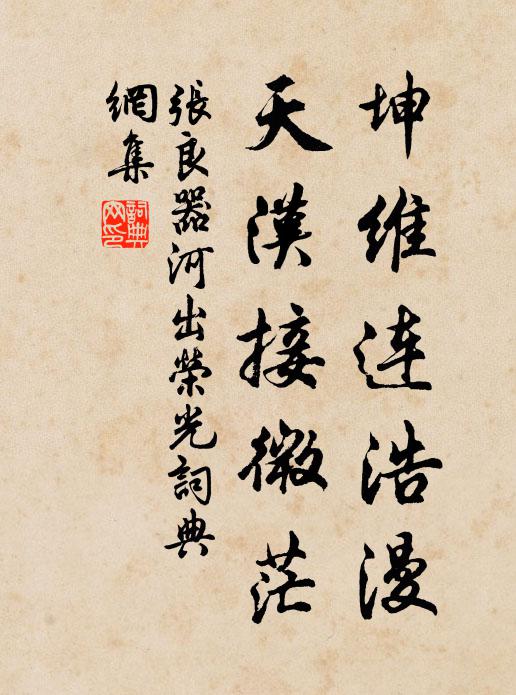 坤維連浩漫
天漢接微茫
張良器河出榮光詞典
網集
詞典
網印